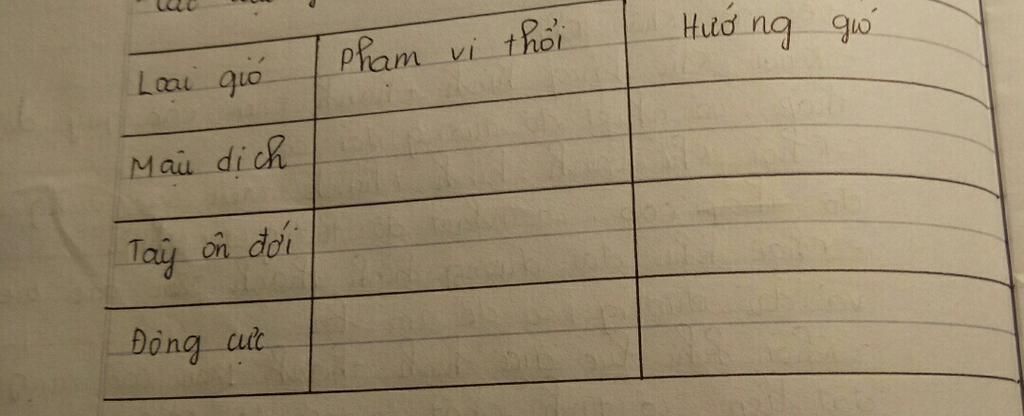 Loại gió Phạm vi thổi Hướng gió
Mậu dịch
Tây ôn đới
Đông cực